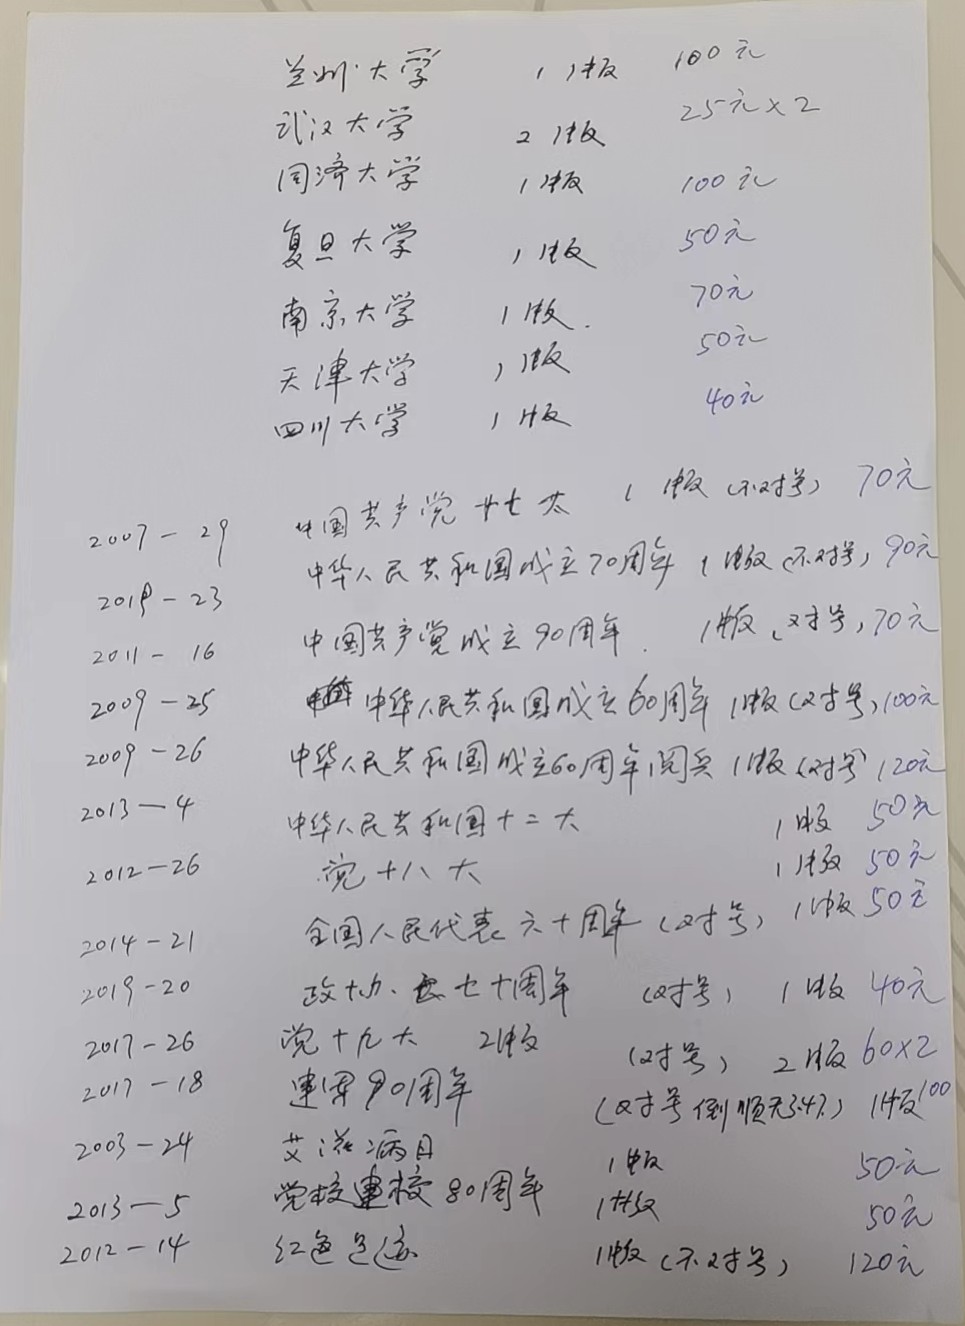 兰州大学 1版 100元
武汉大学 2版 25元×2
同济大学 1版 100元
复旦大学 1版 50元
南京大学 1版. 70元
天津大学 1版 50元
四川大学 1版 40元
2007-29 中国共产党十七大 1版(不对号) 70元
2019-23 中华人民共和国成立70周年 1版(不对号) 90元
2011-16 中国共产党成立90周年. 1版(对号) 70元
2009-25 中华人民共和国成立60周年 1版(对号) 100元
2009-26 中华人民共和国成立60周年阅兵 1版(对号) 120元
2013-4 中华人民共和国十二大 1版 50元
2012-26 党十八大 1版 50元
2014-21 全国人民代表六十周年(对号) 1版 50元
2019-20 政协.七十周年 (对号) 1版 40元
2017-26 党十九大 2版 (对号) 2版 60×2
2017-18 建军90周年 (对号 倒顺无3.47) 1版 100
2003-24 艾滋病日 1版 50元
2013-5 党校建校80周年 1版 50元
2012-14 红色足迹 1版(不对号) 120元